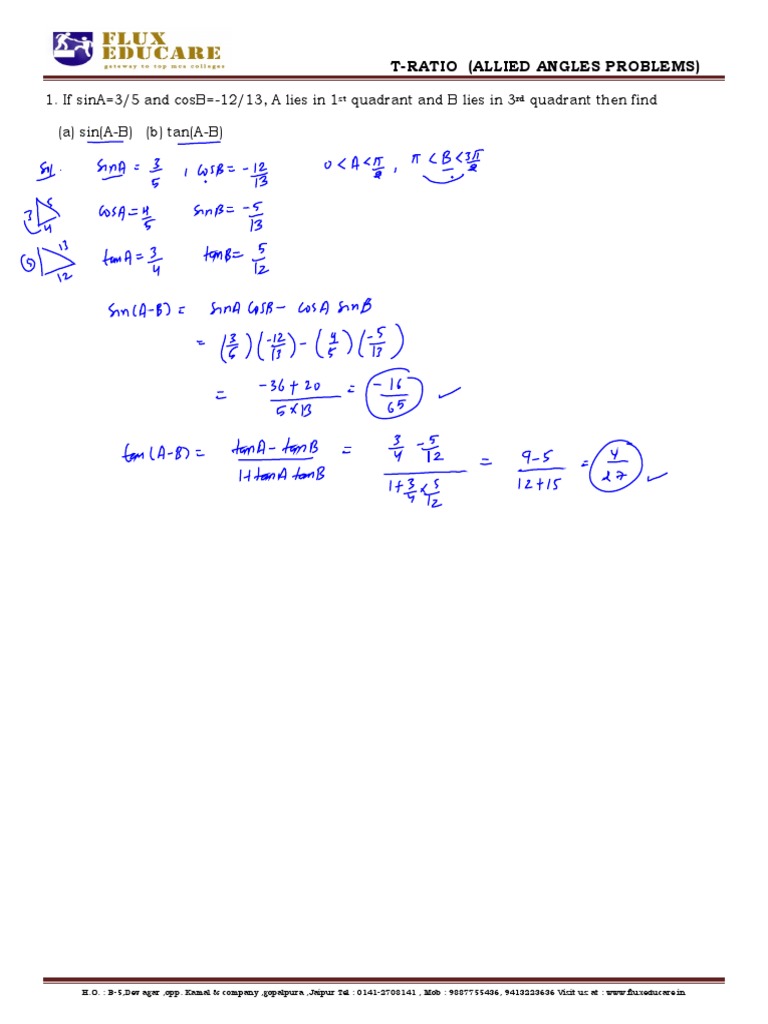 FLUX
EDUCARE
gateway to top mca colleges
T-RATIO (ALLIED ANGLES PROBLEMS)
1. If sinA=3/5 and cosB=-12/13, A lies in 1st quadrant and B lies in 3rd quadrant then find
(a) sin(A-B) (b) tan(A-B)
Sol. sinA = 3/5 , cosB = -12/13 0 < A < π/2 , π < B < 3π/2
3 5 4 cosA = 4/5 sinB = -5/13
5 13 12 tanA = 3/4 tanB = 5/12
sin(A-B) = sinA cosB - cosA sinB
= (3/5)(-12/13) - (4/5)(-5/13)
= -36+20/5×13 = -16/65
tan(A-B) = tanA - tanB/1+tanA tanB = 3/4 - 5/12/1+3/4×5/12 = 9-5/12+15 = 4/27
H.O. : B-5,Dev agar ,opp. Kamal & company ,gopalpura ,Jaipur Tel : 0141-2708141 , Mob : 9887755436, 9413223636 Visit us at : www.fluxeducare.in